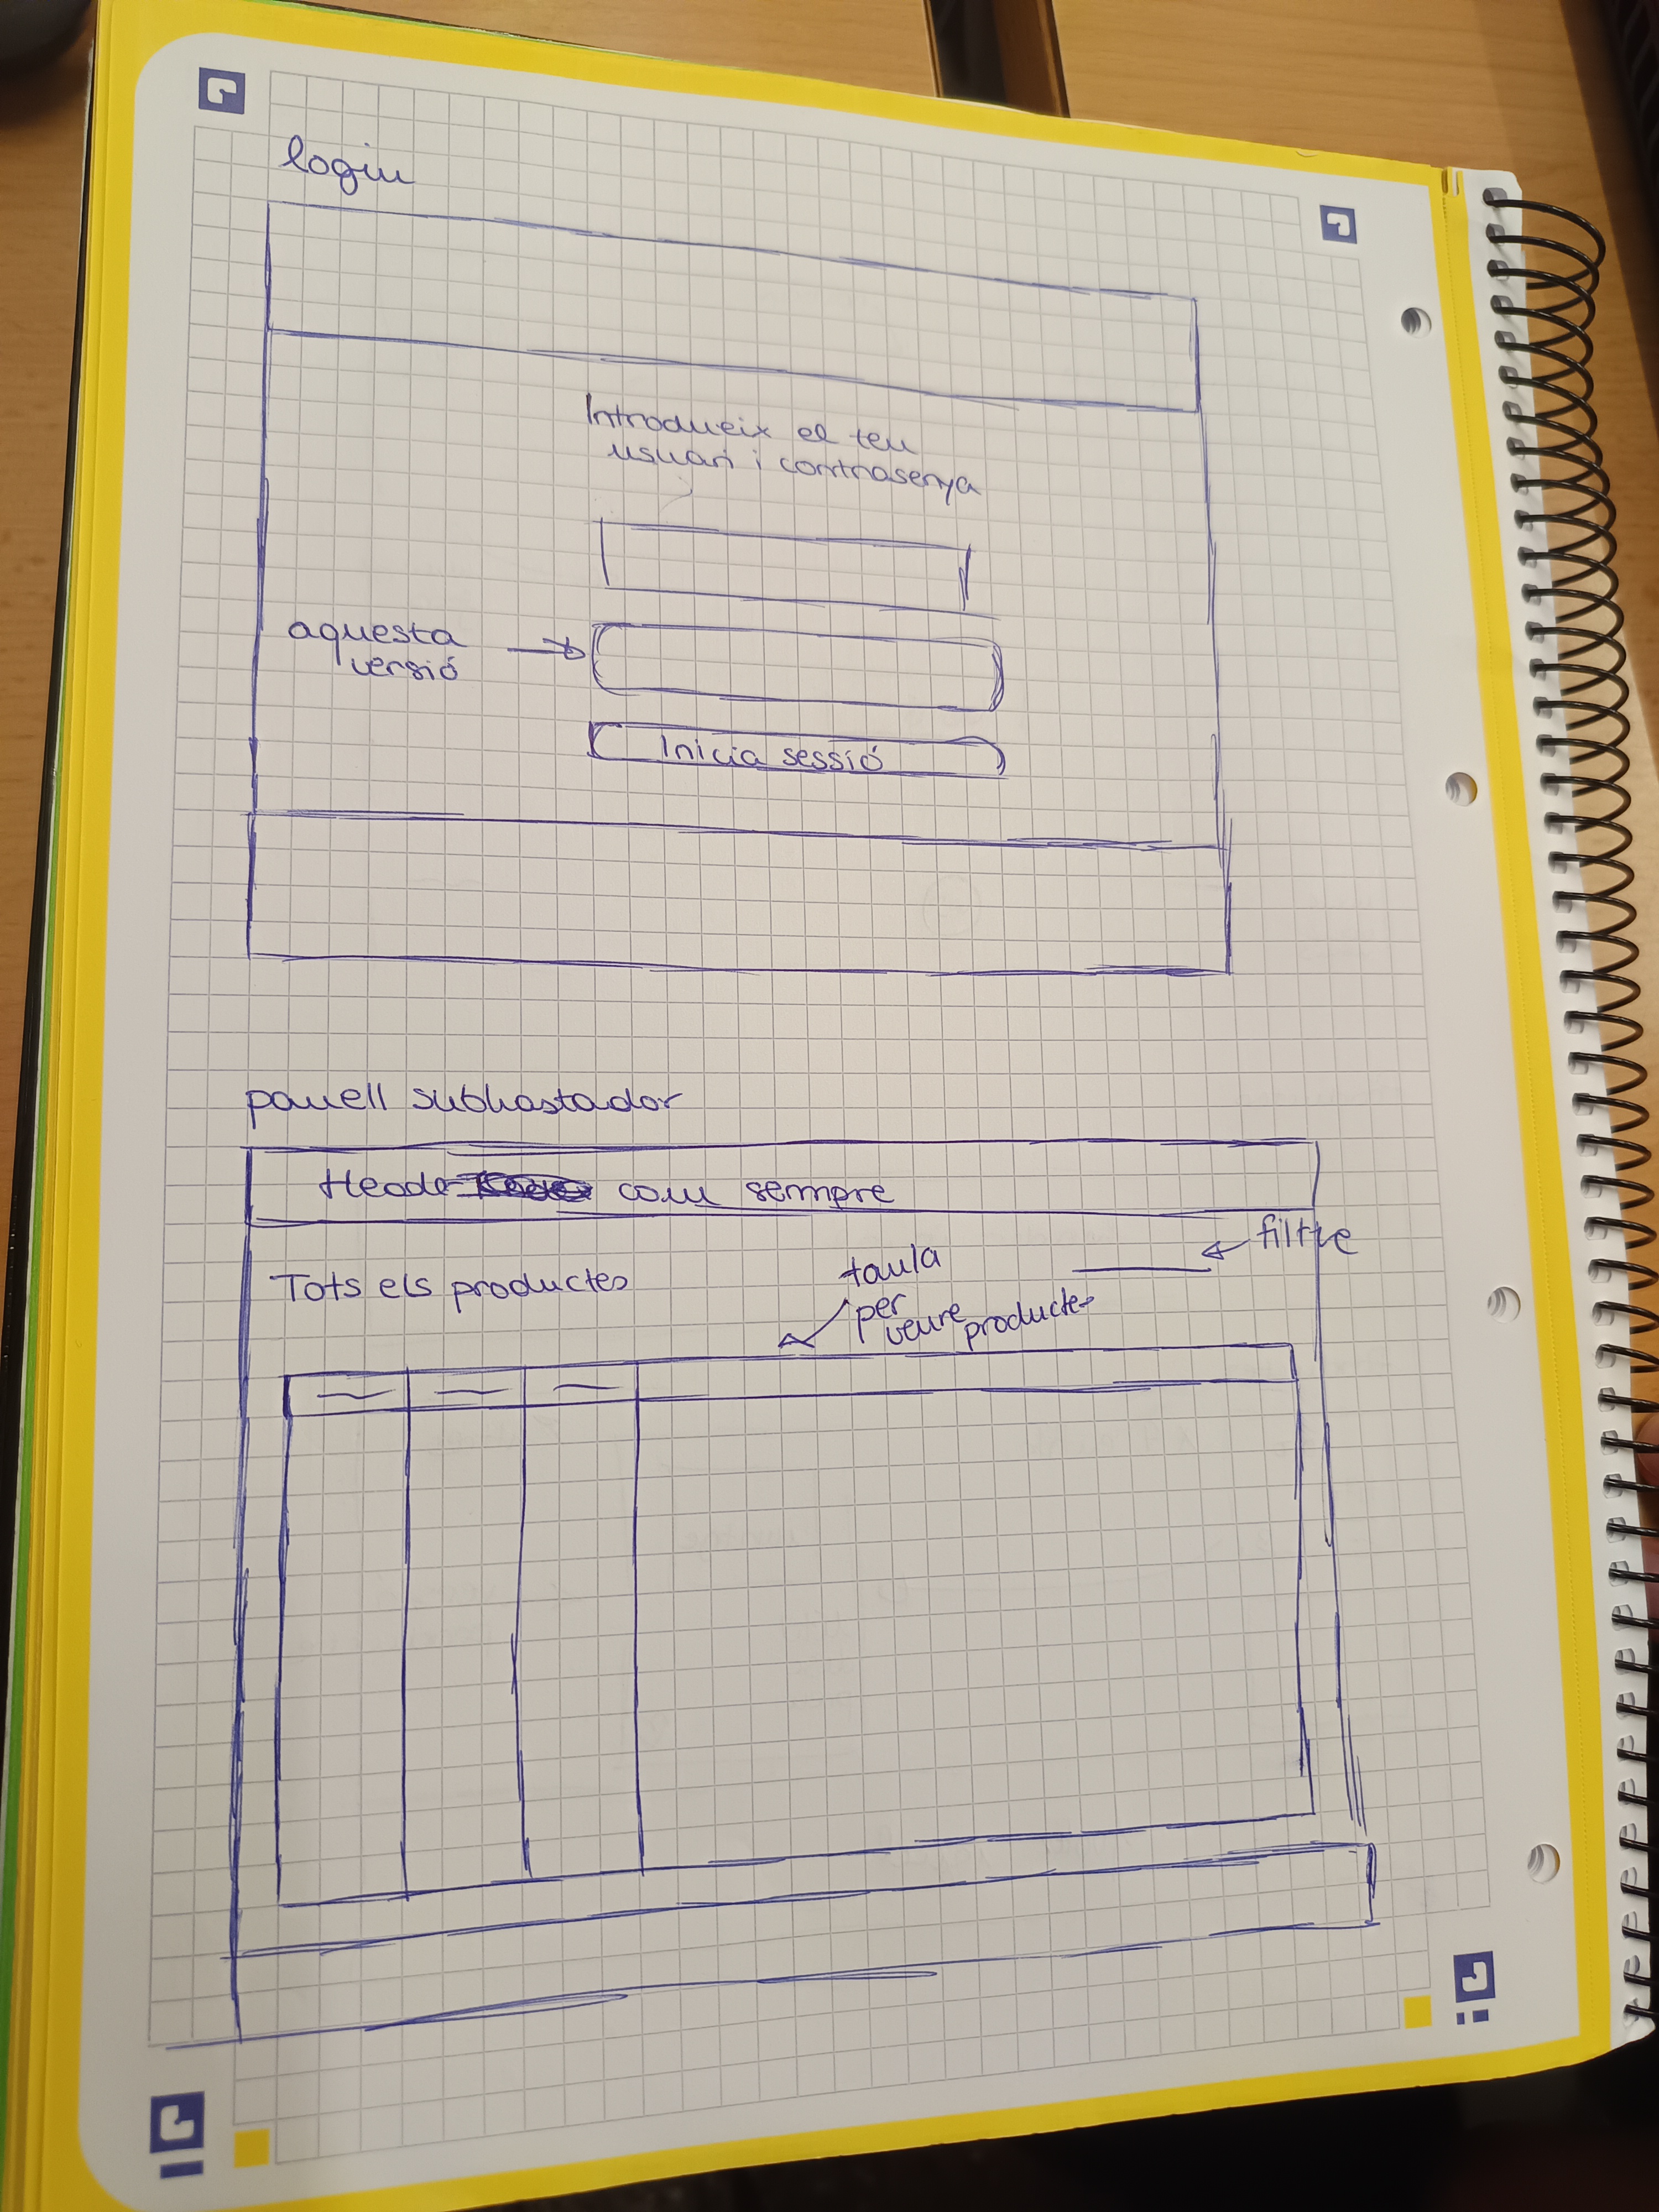 login
Introdueix el teu
usuari i contrasenya
aquesta
versió
Inicia sessió
panell subhastador
Header com sempre
filtre
Tots els productes
taula
per
veure productes